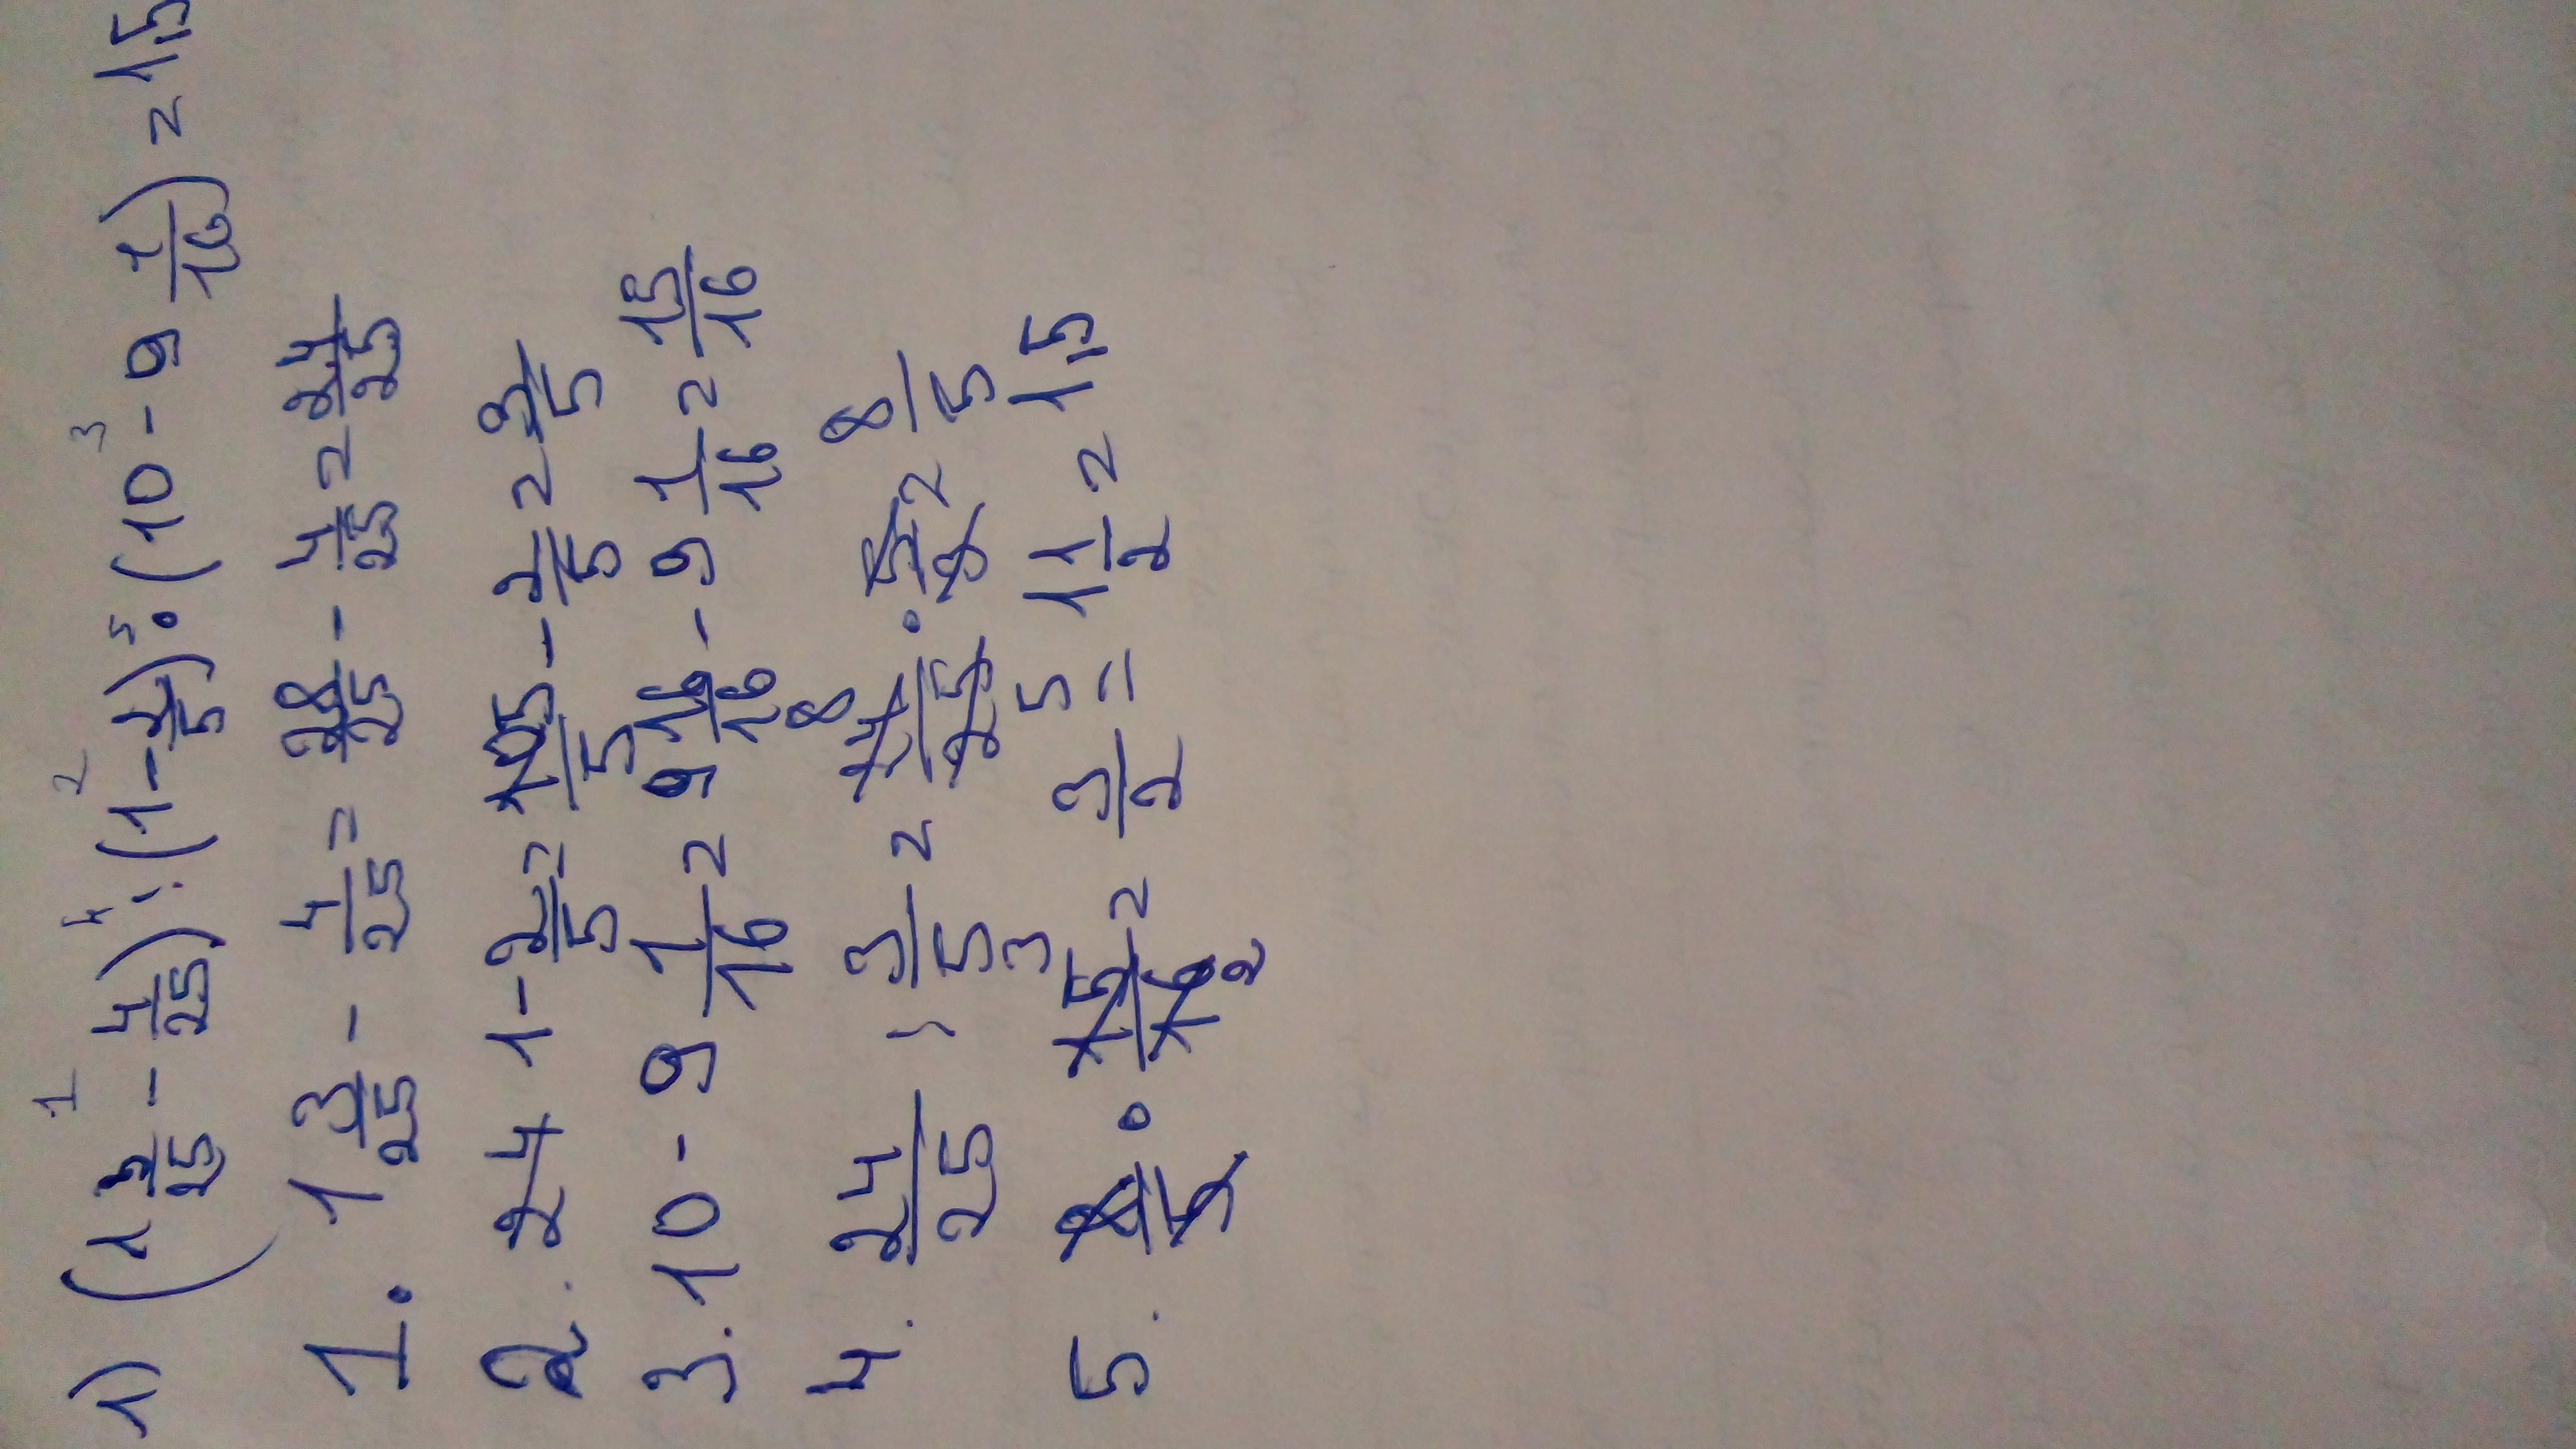 1) (1 3/25 - 4/25) : (1 - 2/5) · (10 - 9 1/16) = 1,5
1. 1 3/25 - 4/25 = 28/25 - 4/25 = 24/25
2. 24 1 - 2/5 = 5/5 - 2/5 = 3/5
3. 10 - 9 1/16 = 9 16/16 - 9 1/16 = 15/16
4. 24/25 : 3/5 = 24/25 · 5/3 = 8/5
5. 8/5 · 15/16 = 3/2 = 1 1/2 = 1,5